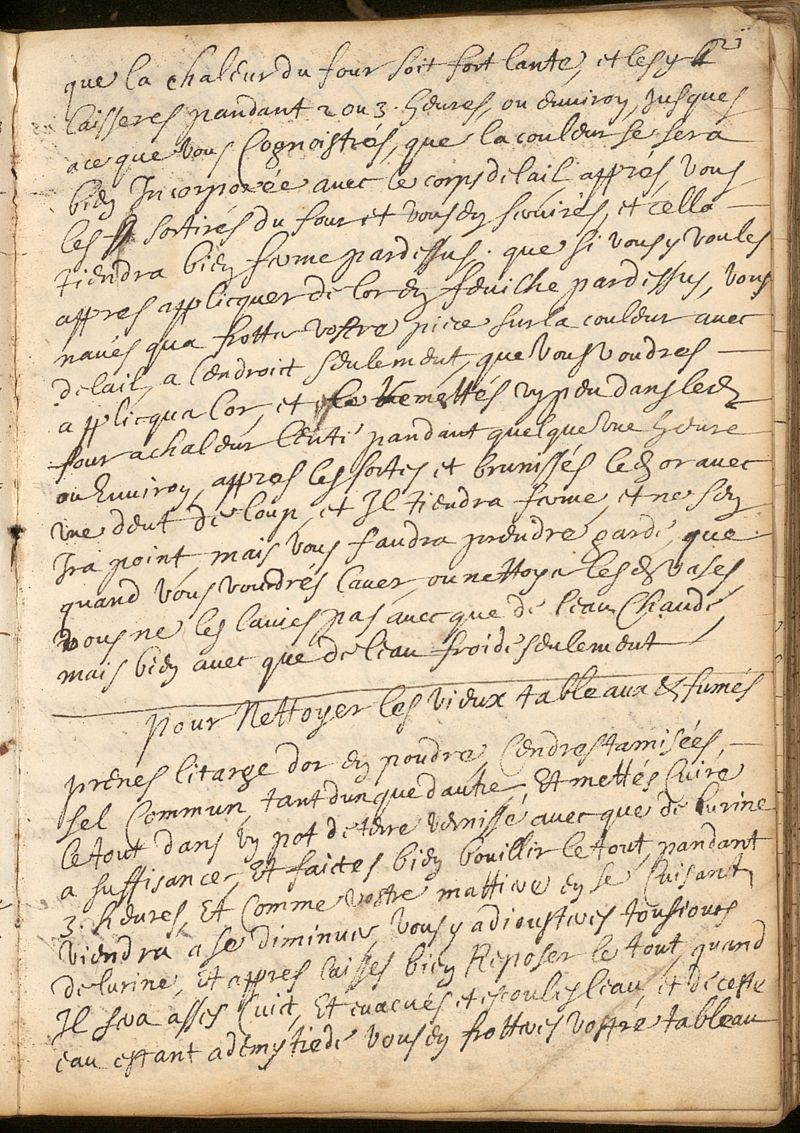 que la chaleur du four soit fort lante, et les y
laisseres pandant 2 ou 3. heures, ou enuiron, jusques
a ce que vous Cognoistrés, que la couleur se sera
bien Incorporée auec le corps delail, apprés vous
les sortirés du four et vous en seruires, et cella
tiendra bien ferme pardessus. que si vous y voules
appres applicquer de lor en feuilhe pardessus, vous
naués qua frotter vostre piece sur la couleur auec
delail, a Lendroict seulement, que vous voudres
applicqua Lor, et Remettés un peu dans led
four a chaleur lente pandant quelque une heure
ou Enuiron, appres les sortes et brunissés led or auec
une dent de loup, et Il tiendra ferme, et ne sen
Ira point, mais vous faudra prendre garde, que
quand vous voudrés lauer, ou nettoyer lesd vases,
vous ne les lauies pas auec que de leau Chaude,
mais bien auec que de leau froide seulement
pour Nettoyer les vieux tableaux & fumés
prenes litarge dor en poudre, Cendres tamisées,
sel Commun, tant dun que dautre, Et mettés Cuire
le tout dans un pot de terre vernissé auec que de lurine
a suffisance, Et faictes bien bouillir le tout, pandant
3. heures, Et Comme vostre mattiere en se Cuisant
viendra a se diminuer, vous y adiousteres tousiours
de lurine, Et appres laisses bien Reposer le tout, quand
Il sera asses Cuict, Et euacués et escoules leau, et de ceste
eau estant a demy tiede vous en frotteres vostre tableau